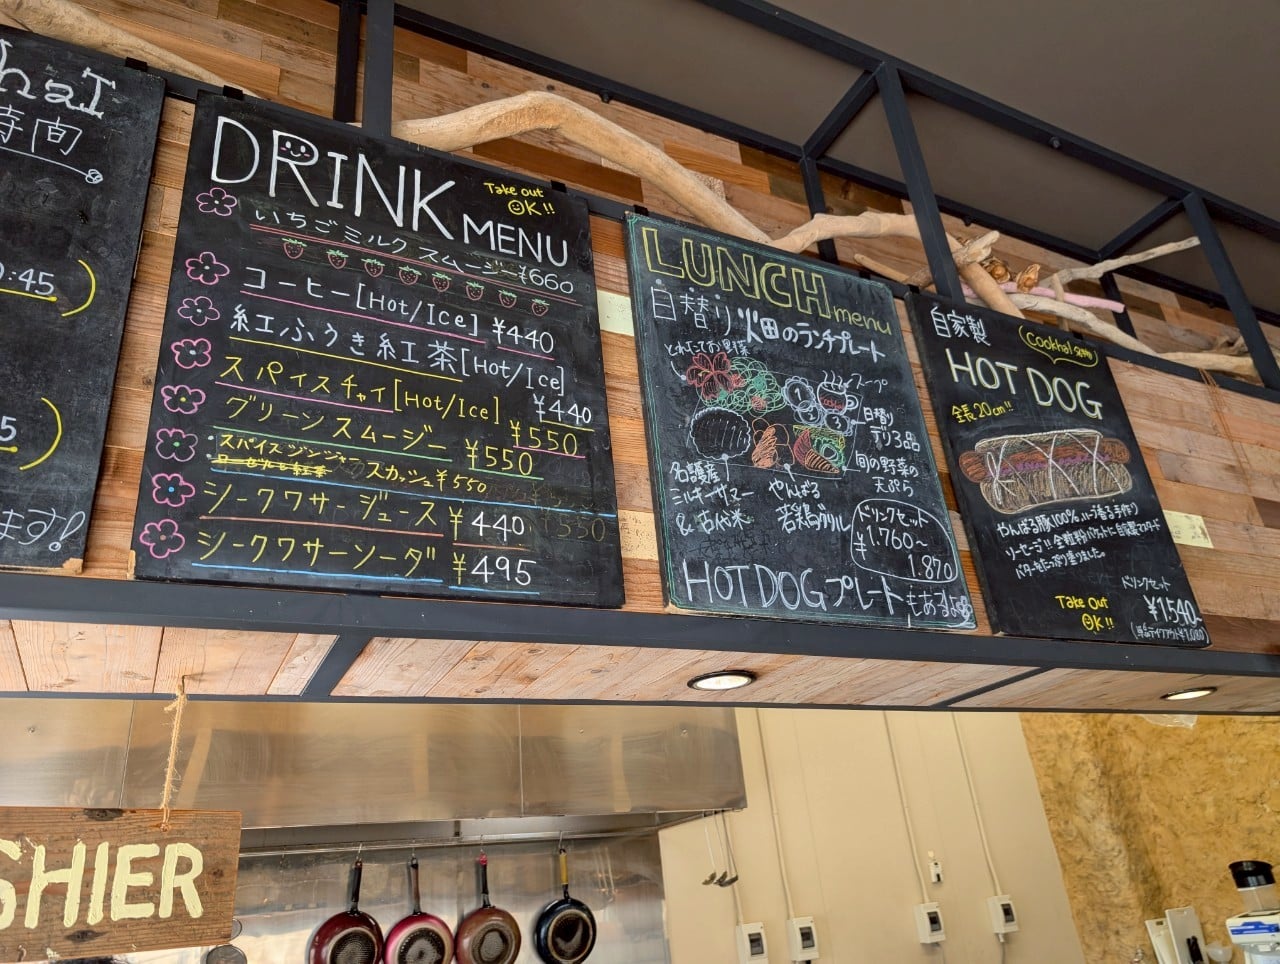 haI
時間
:45
5
ます!
DRINK MENU
Take out
OK!!
いちごミルク スムージー ¥660
コーヒー[Hot/Ice] ¥440
紅ふうき紅茶[Hot/Ice]
¥440
スパイスチャイ[Hot/Ice] ¥550
グリーンスムージー ¥550
スパイスジンジャー
スカッシュ ¥550
シークワサージュース ¥440
シークワサーソーダ ¥495
LUNCH menu
日替り 畑のランチプレート
とれたてお野菜
スープ
日替り
デリ3品
旬の野菜の
天ぷら
名護産
ミルキーサマー
&古代米
やんばる
若鶏グリル
ドリンクセット
¥1.760~
1.870
HOT DOG プレート もあるよ
自家製
Cookhal
HOT DOG
全長20cm!!
やんばる豚100% ハーブ香る手作り
ソーセージ!! 全粒粉バゲットに自家製マスタード
バターをたっぷり塗りました。
ドリンクセット
¥1,540
Take Out
OK!!
SHIER